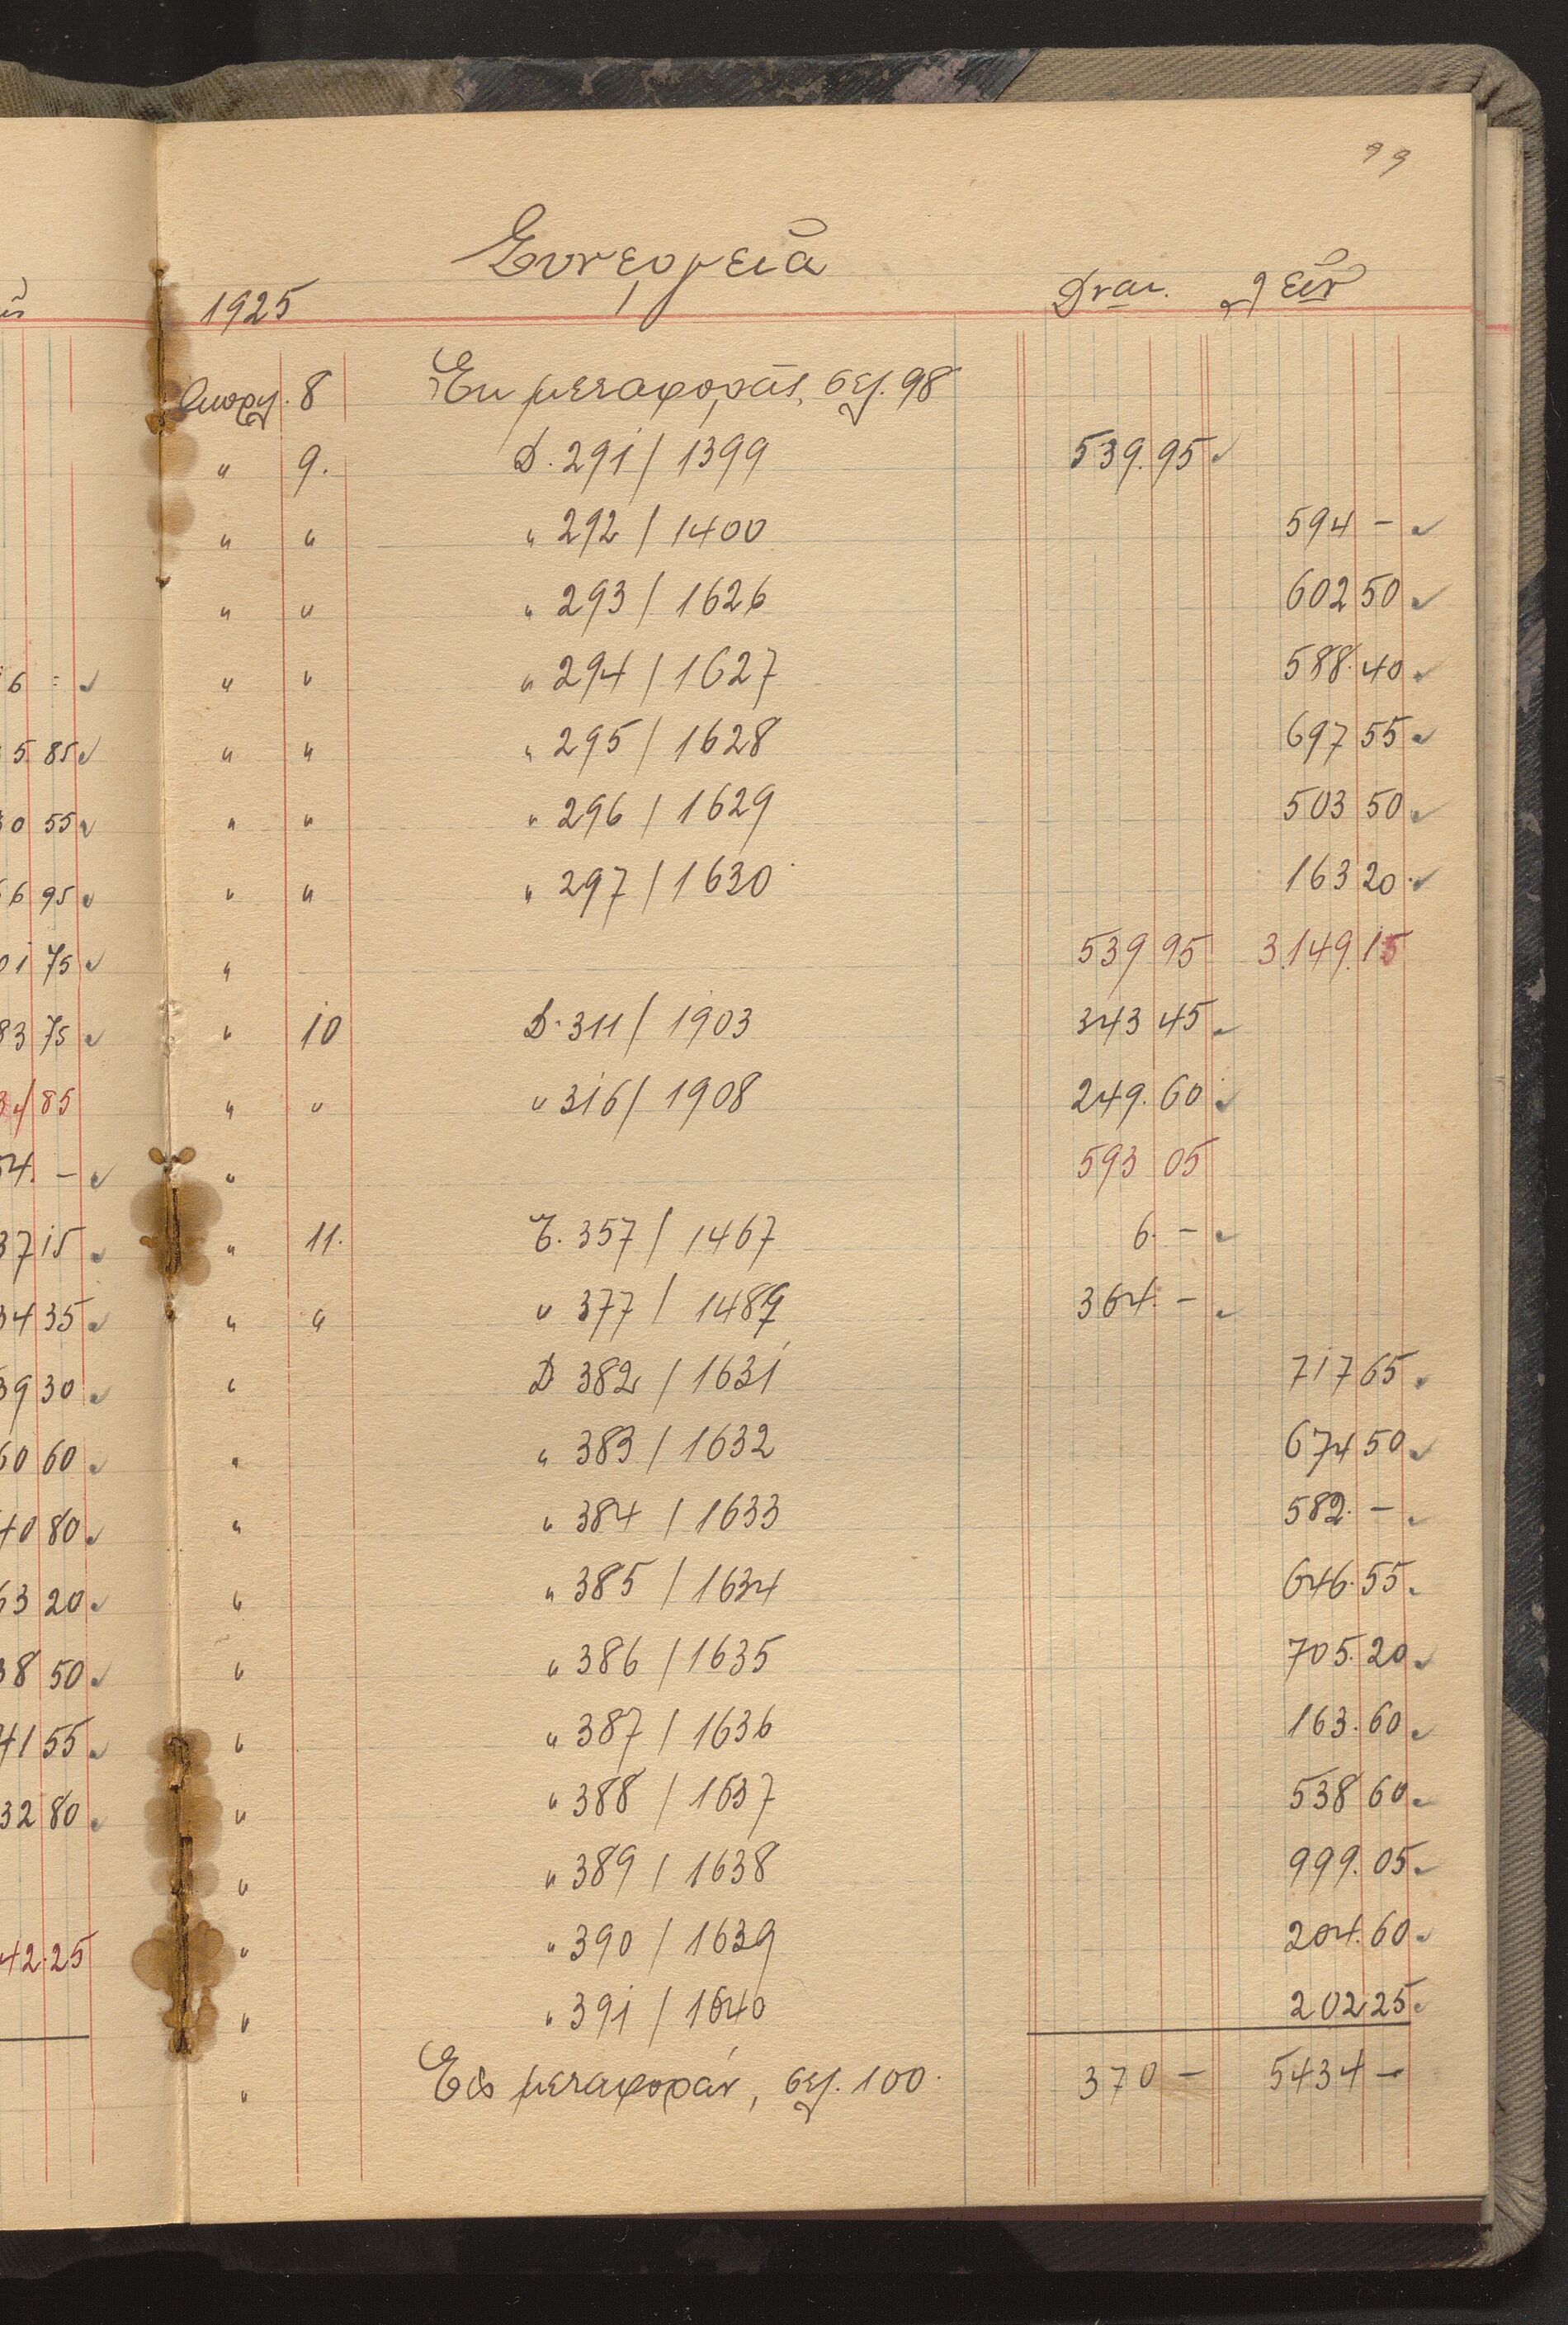 99
Συνεργεῖα
1925
8 Ἐκ μεταφορᾶς, σελ. 98
" 9. D. 291 / 1399 539.95
" " " 292 / 1400 594 –
" " " 293 / 1626 602 50
" " " 294 / 1627 588.40
" " " 295 / 1628 697 55
" " " 296 / 1629 503 50
" " " 297 / 1630 163 20
" 539 95 3.149.15
" 10 D. 311 / 1903 343 45
" " " 316 / 1908 249.60
" 593 05
" 11. 357 / 1467 6. –
" " " 377 / 1489 364. –
" D 382 / 1631 717 65
" " 383 / 1632 674 50
" " 384 / 1633 582. –
" " 385 / 1634 646.55
" " 386 / 1635 705.20
" " 387 / 1636 163.60
" " 388 / 1637 538 60
" " 389 / 1638 999.05
" " 390 / 1639 204.60
" " 391 / 1640 202 25
" Εἰς μεταφοράν, σελ. 100. 370 – 5434 –
6 =
5 85
0 55
6 95
01 75
83 75
85
4. –
37 15
34 35
39 30
60 60
40 80
63 20
38 50
41 55
32 80
42.25